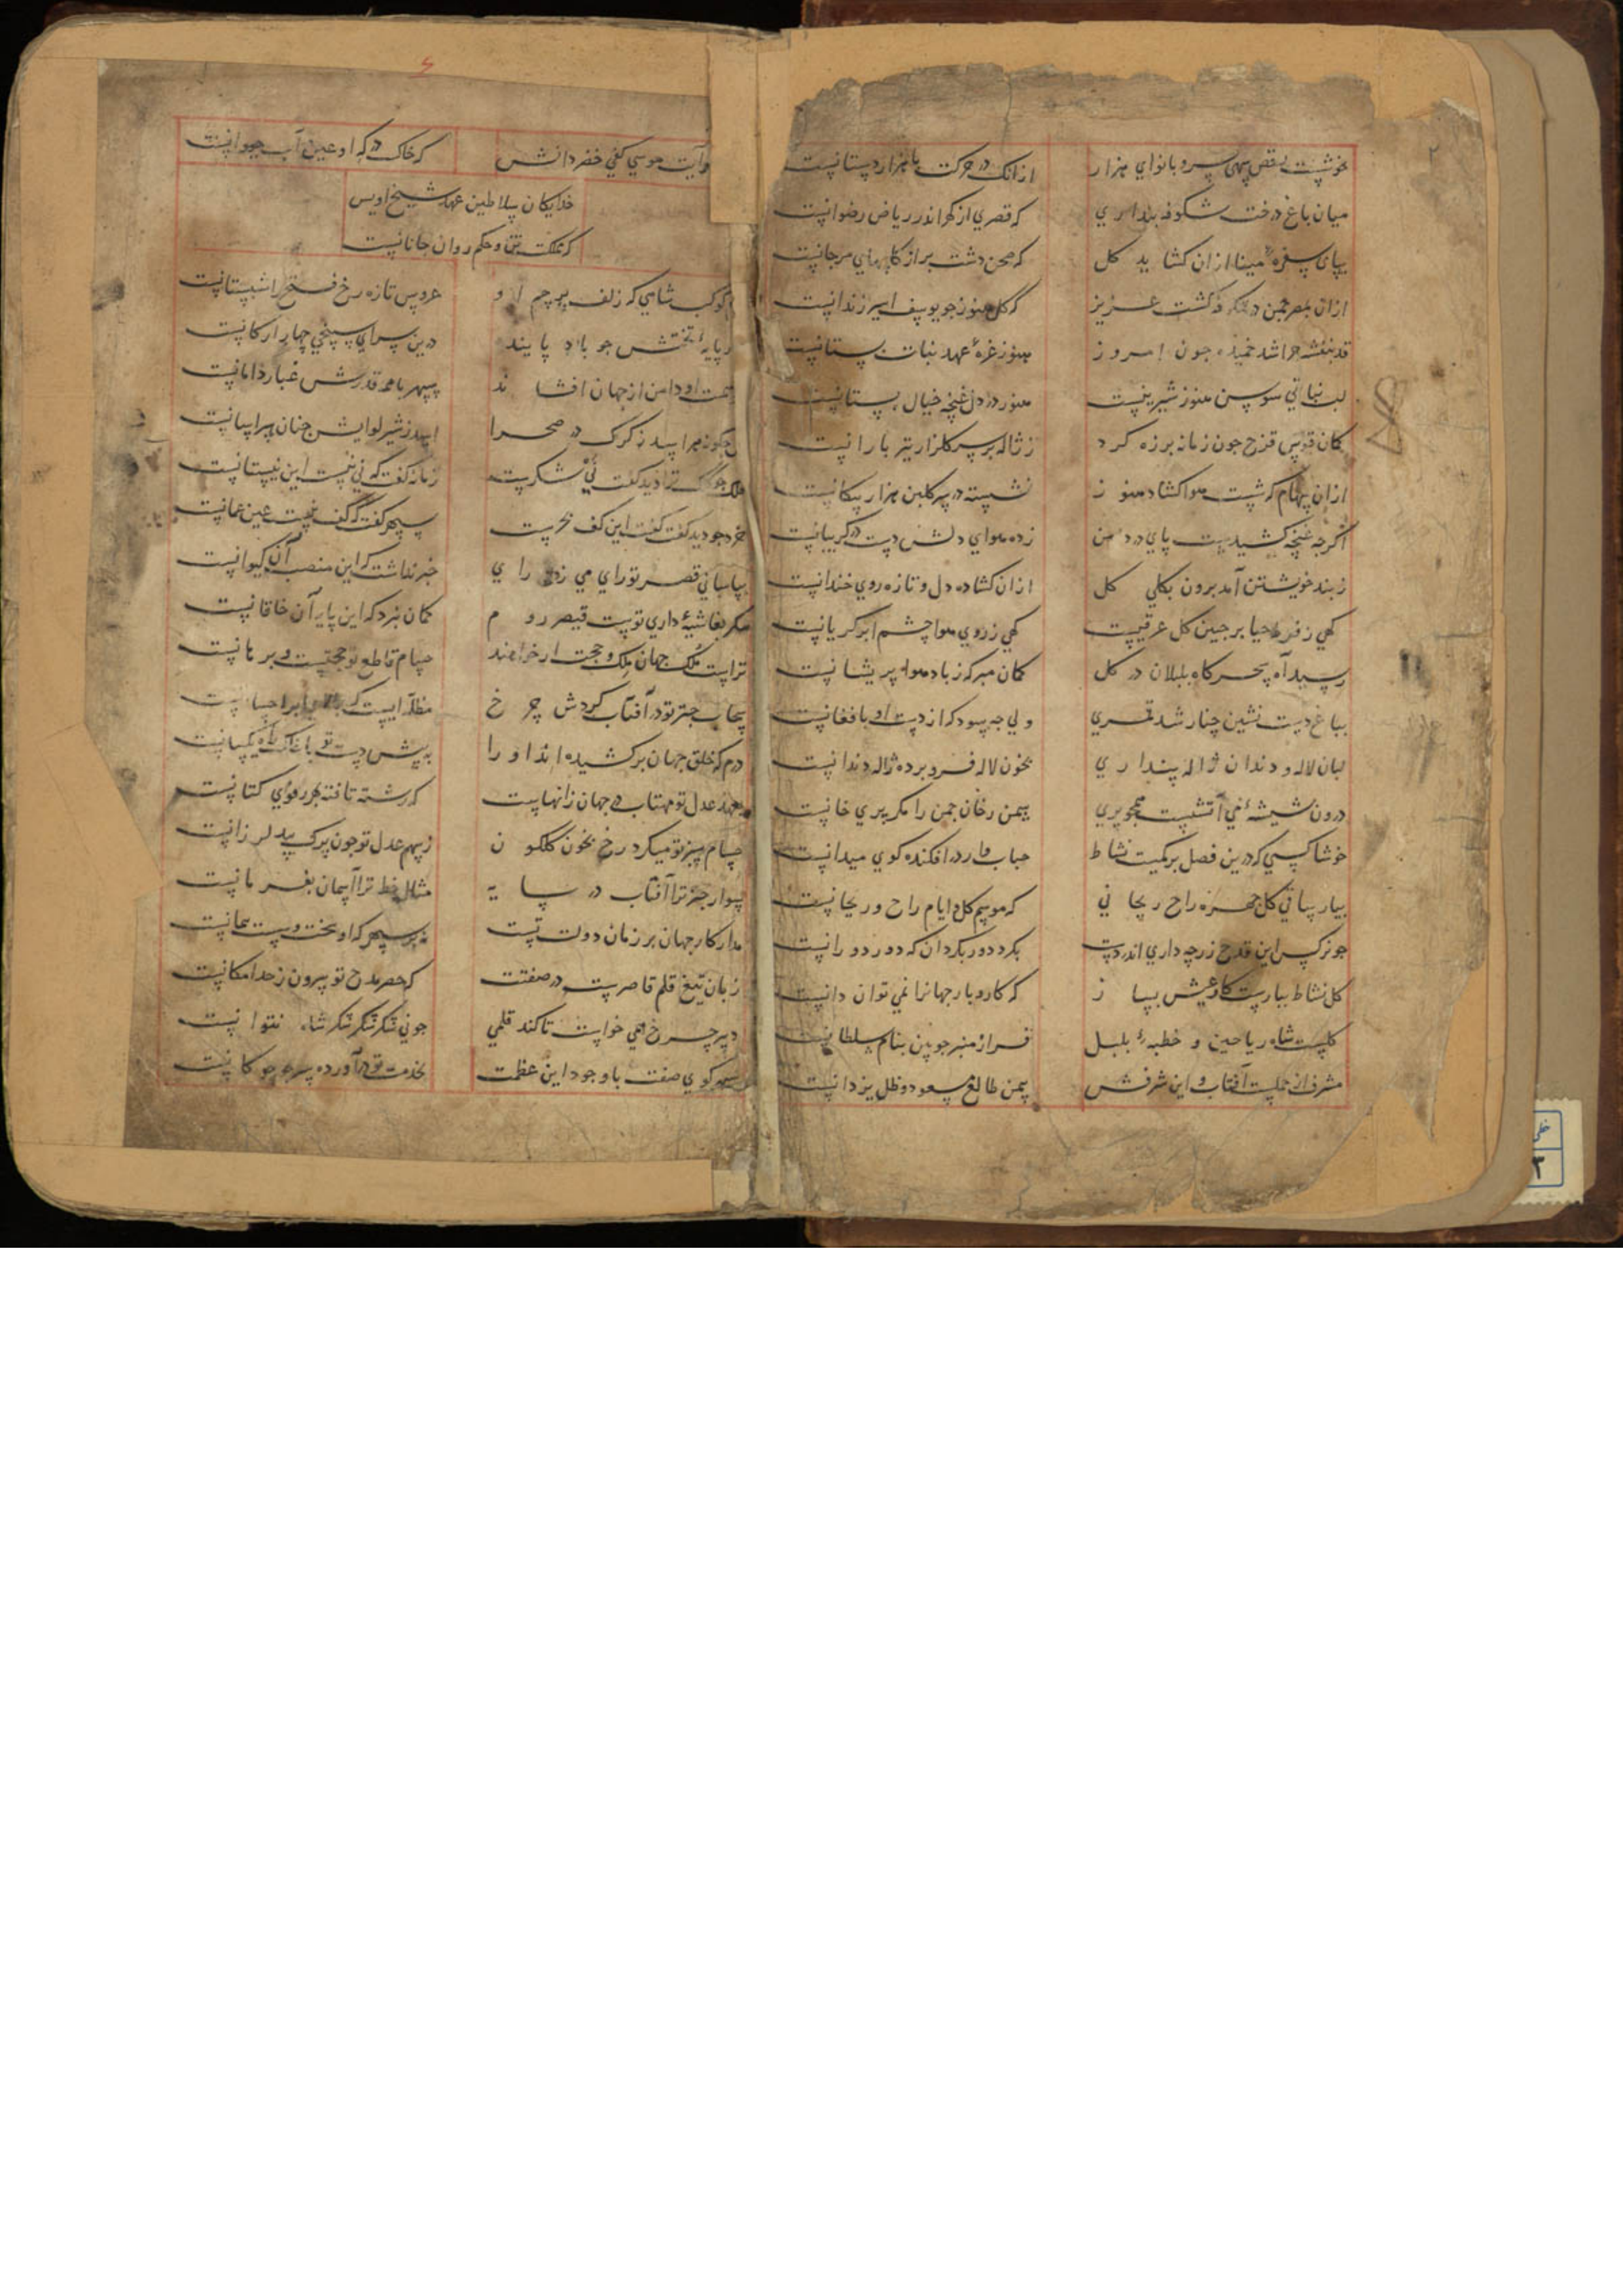 خوشست رقص سهی سرو با نوای هزار
از انک در حرکت با هزار دستانست
میان باغ درخت شکوفه پنداری
که قصری از کهر اندر ریاض رضوانست
بپای سبزه مینا ازان کشاید کل
که صحن دشت بر از کاههای مرجانست
ازان بمصر جمن در شکر نکشت عزیز
که کل هنوز جو یوسف اسیر زندانست
قد بنفشه جرا شد خمیده جون امروز
هنوز غرهٔ عهد نبات بستانست
لب نباتی سوسن هنوز شیرینست
هنوز در دل غنچه خیال بستانست
کمان قوس قزح جون زمانه بر زه کرد
ز ژاله بر سر کلزار تیر بارانست
ازان سهام که شست هوا کشاد هنوز
نشسته در سر کلبن هزار پیکانست
اکرجه غنچه کشیدست پای در دامن
زده هوای دلش دست در کریبانست
ز بند خویشتن آمد برون بکلی کل
ازان کشاده دل و تازه روی خندانست
کهی ز فرط حیا بر جبین کل عرقیست
کهی ز روی هوا چشم ابر کریانست
رسید آه سحرکاه بلبلان در کل
کمان مبر که ز باد هوا پریشانست
بباغ دست نشین چنار شد قمری
ولی جه سود که از دست او بافغانست
لبان لاله و دندان ژاله پنداری
بخون لاله فرو برده ژاله دندانست
درون شیشهٔ می آتشیست همجو پری
بیمن رخان جمن را مکر پری خانست
خوشا کسی که درین فصل بر کمیت نشاط
حباب وار در افکنده کوی میدانست
بیار ساقی کل جهره راح ریحانی
که موسم کل و ایام راح و ریحانست
جو نرکس این قدح زر جه داری اندر دست
بکرد دور بکردان که دور دورانست
کل نشاط ببارست کار عیش بساز
که کار و بار جهانرا نمی توان دانست
کلست شاه ریاحین و خطبهٔ بلبل
فراز منبر جوبین بنام سلطانست
مشرف از حملست آفتاب و این شرفش
بیمن طالع مسعود و ظل یزدانست
وآیت موسی کفی خضر دانش
که خاک درکه او عین آب حیوانست
خدایکان سلاطین عهد شیخ اویس
که مملکت تن و حکم روان جانانست
کوکب شاهی که زلف پرچم او
عروس تازه رخ فتح را شبستانست
پایهٔ تختش جو باد پایند
درین سرای سپنجی چهار ارکانست
همت او دامن از جهان افشاند
سپهر با همه قدرش غبار دامانست
جکونه هراسد ز کرک در صحرا
اسد ز شیر لوایش جنان هراسانست
ملک جو کلک ترا دید کفت نی شکرست
زمانه کفت که نی نیست این نیستانست
خرد جو دید کفت کفت این کف بحرست
سپهر کفت که کف نیست عین عمانست
بپاسبانی قصر تو رای می زد رای
خبر نداشت که این منصب آن کیوانست
مکر بغاشیه داری تست قیصر روم
کمان نبرد که این پایه آن خاقانست
تراست ملک جهان ملک و حجت ار خواهند
حسام قاطع تو حجتست و برهانست
سحاب جتر تو در آفتاب کردش چرخ
درم که خلق جهان بر کشیده اند او را
به پیش دست تو با خاک راه یکسانست
بعهد عدل تو مهتاب در جهان زانهاست
که رشته تافته بهر رفوی کتانست
حسام سبز تو میکرد رخ بخون کلکون
ز بیم عدل تو جون برک بید لرزانست
سواد جتر ترا آفتاب در سایه
مثال خط ترا آسمان بفرمانست
مدار کار جهان بر زمان دولت تست
نه بر سپهر که او سخت و سست پیمانست
زبان تیغ قلم قاصرست در صفتت
که حصر مدح تو بیرون ز حد امکانست
دبیر چرخ همی خواست تا کند قلمی
جو نی شکر شکر شکر شاه نتوانست
سپهر کوی صفت با وجود این عظمت
بخدمت تو در آورده سر جو جوکانست